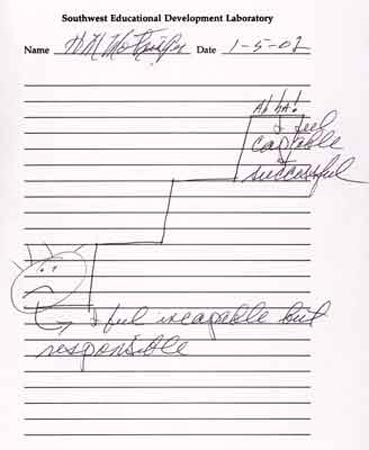 Southwest Educational Development Laboratory
Name Date 1-5-02
Ah ha!
I feel
capable
&
successful
I feel incapable but
responsible